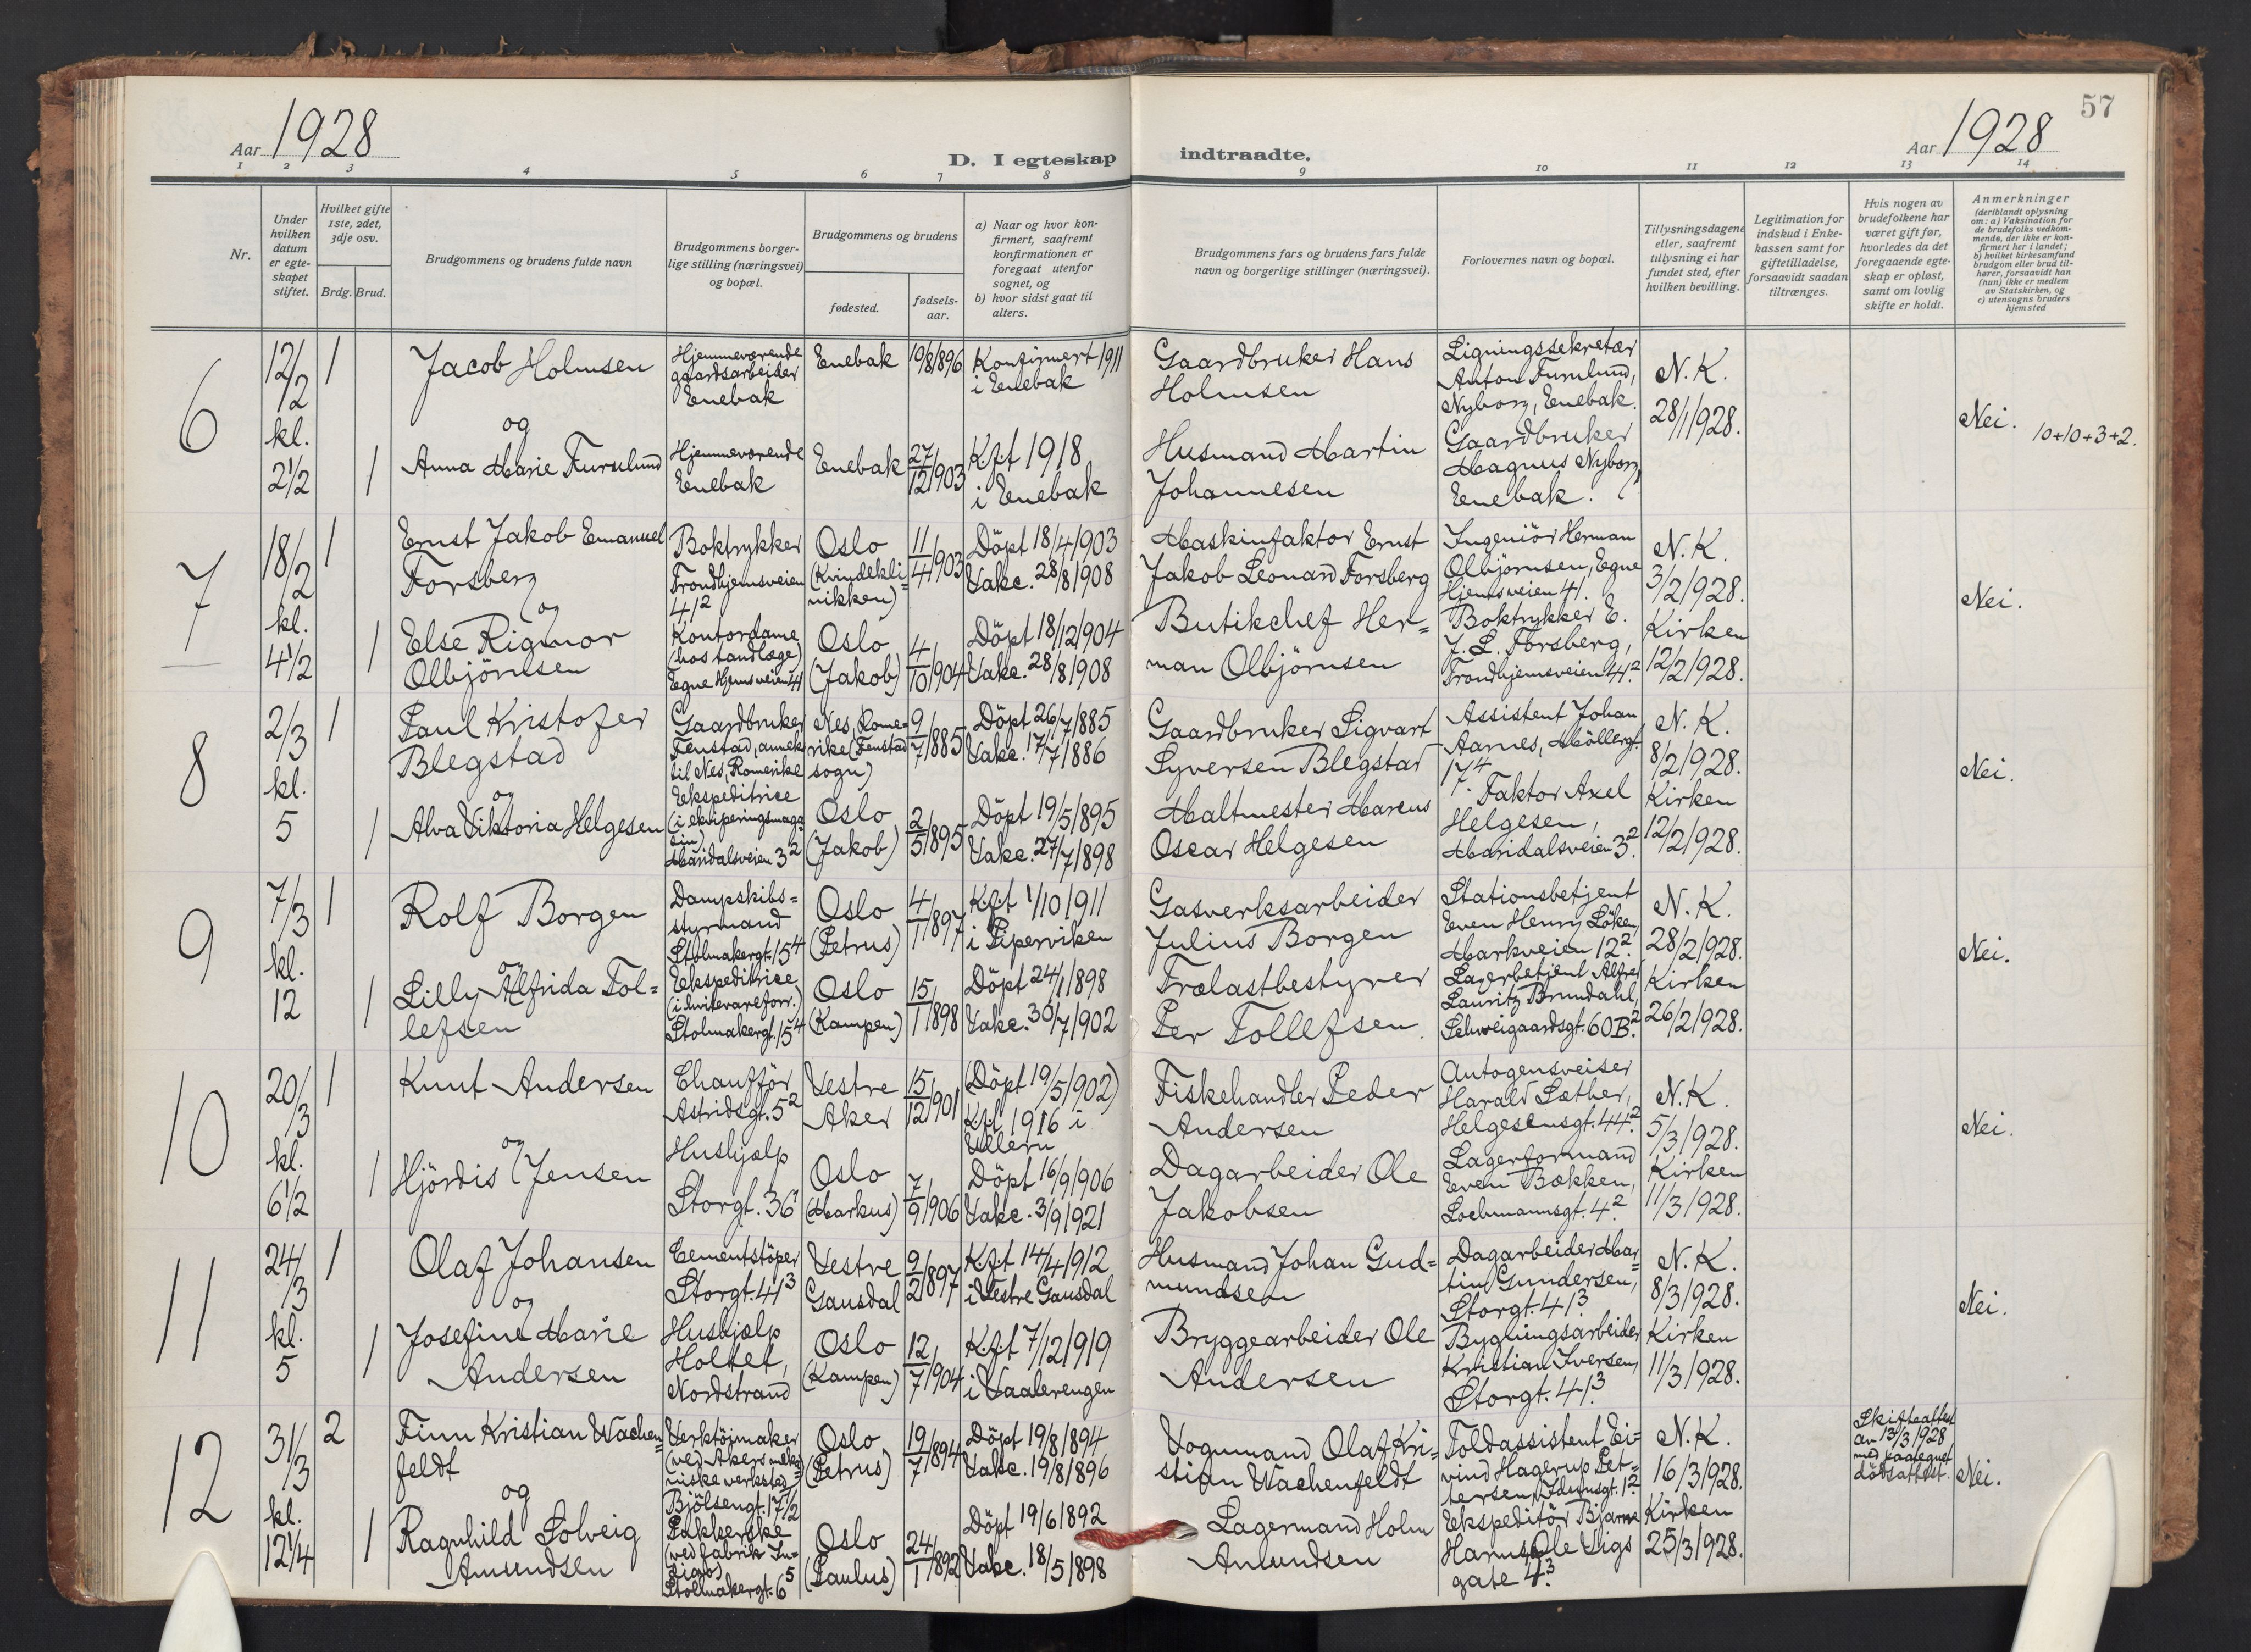 57
Aar 1928
Aar 1928
D. I egteskap indtraadte.
1 2 3 4 5 6 7 8 9 10 11 12 13 14
Nr.
Under
hvilken
datum
er egte-
skapet
stiftet.
Hvilket gifte
1ste, 2det,
3dje osv.
Brdg. Brud.
Brudgommens og brudens fulde navn
Brudgommens borger-
lige stilling (næringsvei)
og bopæl.
Brudgommens og brudens
fødested.
fødsels-
aar.
a) Naar og hvor kon-
firmert, saafremt
konfirmationen er
foregaat utenfor
sognet, og
b) hvor sidst gaat til
alters.
Brudgommens fars og brudens fars fulde
navn og borgerlige stillinger (næringsvei).
Forlovernes navn og bopæl.
Tillysningsdagene
eller, saafremt
tillysning ei har
fundet sted, efter
hvilken bevilling.
Legitimation for
indskud i Enke-
kassen samt for
giftetilladelse,
forsaavidt saadan
tiltrænges.
Hvis nogen av
brudefolkene har
været gift før,
hvorledes da det
foregaaende egte-
skap er opløst,
samt om lovlig
skifte er holdt.
Anmerkninger
(deriblandt oplysning
om: a) Vaksination for
de brudefolks vedkom-
mende, der ikke er kon-
firmert her i landet;
b) hvilket kirkesamfund
brudgom eller brud til-
hører, forsaavidt han
(hun) ikke er medlem
av Statskirken, og
c) utensogns bruders
hjemsted
6
12/2
kl.
2 1/2
1
Jacob Holmsen
og
Hjemmeværende
gaardsarbeider
Enebak
Enebak
10/8/896
Konfirmert 1911
i Enebak
Gaardbruker Hans
Holmsen
Ligningssekretær
Anton Furulund,
Nyborg, Enebak.
N.K.
28/1/928.
Nei.
10+10+3+2.
1
Anna Marie Furulund
Hjemmeværende
Enebak
Enebak
27/12/903
Kft 1918
i Enebak
Husmand Martin
Johannesen
Gaardbruker
Magnus Nyborg,
Enebak.
7
18/2
kl.
4 1/2
1
Ernst Jakob Emanuel
Forsberg
og
Boktrykker
Trondhjemsveien
41 2
Oslo
(Kvindekli=
nikken)
11/4/903
Döpt 18/4/903
Vakc. 28/8/908
Maskinfaktor Ernst
Jakob Leonard Forsberg
Ingeniör Herman
Olbjörnsen, Egne
Hjemsveien 41.
N.K.
3/2/928.
Nei.
1
Else Rigmor
Olbjörnsen
Kontordame
(hos tandlæge)
Egne Hjemsveien 41
Oslo
(Jakob)
4/10/904
Döpt 18/12/904
Vakc. 28/8/908
Butikchef Her=
man Olbjörnsen
Boktrykker E.
J. L. Forsberg,
Trondhjemsveien 41 2.
Kirken
12/2/928.
8
2/3
kl.
5
1
Paul Kristofer
Blegstad
og
Gaardbruker
Fenstad, anneks
til Nes, Romerike
Nes, Rome=
rike (Fenstad
sogn)
9/7/885
Döpt 26/7/885
Vakc. 17/7/886
Gaardbruker Sigvart
Syversen Blegstad
Assistent Johan
Aarnes, Möllergt.
17 4.
N.K.
8/2/928.
Nei.
1
Alva Viktoria Helgesen
Ekspeditrice
(i ekviperingsmaga=
sin)
Maridalsveien 3 2
Oslo
(Jakob)
2/5/895
Döpt 19/5/895
Vakc. 27/7/898
Maltmester Marcus
Oscar Helgesen
Faktor Axel
Helgesen,
Maridalsveien 3 2.
Kirken
12/2/928.
9
7/3
kl.
12
1
Rolf Borgen
og
Dampskibs=
styrmand
Stolmakergt. 15 4
Oslo
(Petrus)
4/1/897
Kft 1/10/911
i Piperviken
Gasverksarbeider
Julius Borgen
Stationsbetjent
Even Henry Löken,
Markveien 12 2.
N.K.
28/2/928.
Nei.
1
Lilly Alfrida Tol=
lefsen
Ekspeditrice
(i hvitevareforr.)
Stolmakergt. 15 4
Oslo
(Kampen)
15/1/898
Döpt 24/1/898
Vakc. 30/7/902
Trælastbestyrer
Per Tollefsen.
Lagerbetjent Alfred
Lauritz Brundahl,
Schweigaardsgt. 60B. 2
Kirken
26/2/928.
10
20/3
kl.
6 1/2
1
Knut Andersen
og
Chaufför
Astridsgt. 5 2
Vestre
Aker
15/12/901
(Döpt 19/5/902)
Kft 1916 i
Ullern
Fiskehandler Peder
Andersen
Autogensveiser
Harald Sæther,
Helgesensgt. 44 2.
N.K.
5/3/928.
Nei.
1
Hjördis Jensen
Hushjælp
Storgt. 36
Oslo
(Markus)
7/9/906
Döpt 16/9/906
Vakc. 3/9/921
Dagarbeider Ole
Jakobsen
Lagerformand
Even Bækken,
Lochmannsgt. 4 2.
Kirken
11/3/928.
11
24/3
kl.
5
1
Olaf Johansen
og
Cementstöper
Storgt. 41 3
Vestre
Gausdal
9/2/897
Kft 14/4/912
i Vestre Gausdal
Husmand Johan Gud=
mundsen
Dagarbeider Mar=
tin Gundersen,
Storgt. 41 3.
N.K.
8/3/928.
Nei.
1
Josefine Marie
Andersen
Hushjælp
Holtet,
Nordstrand
Oslo
(Kampen)
12/7/904
Kft 7/12/919
i Vaalerengen
Bryggearbeider Ole
Andersen
Bygningsarbeider
Kristian Iversen,
Storgt. 41 3
Kirken
11/3/928.
12
31/3
kl.
12 1/4
2
Finn Kristian Wachen=
feldt
og
Verktöimaker
(ved Akers meka=
niske verksted)
Bjölsengt. 17 1/2
Oslo
(Petrus)
19/7/894
Döpt 19/8/894
Vakc. 19/8/896
Vognmand Olaf Kri=
stian Wachenfeldt
Toldassistent Ei=
vind Hagerup Pet=
tersen, Idunsgt. 1 2.
N.K.
16/3/928.
Skifteattest
av 13/3 1928
med paategnet
dödsattest.
Nei.
1
Ragnhild Solveig
Amundsen
Pakkerske
(ved fabrik
Stolmakergt. 6 5
Oslo
(Paulus)
24/1/892
Döpt 19/6/892
Vakc. 18/5/898
Lagermand Holm
Amundsen
Ekspeditör Bjarne
Ole Vigs
gate 4 3.
Kirken
25/3/928.